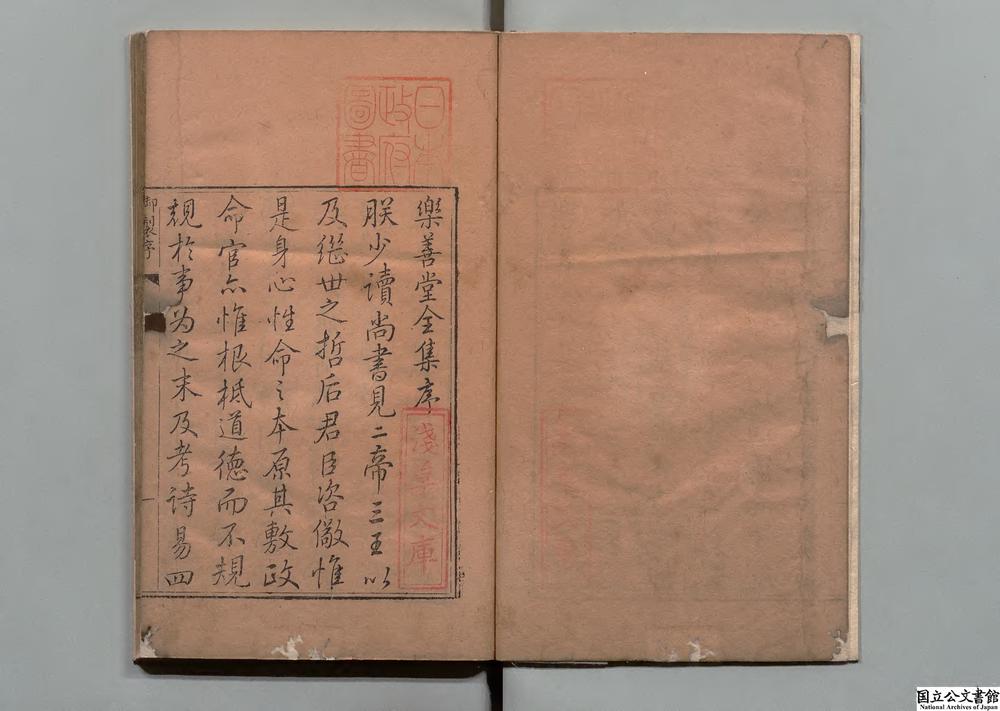 樂善堂全集序
朕少讀尚書見二帝三王以
及繼世之哲后君臣咨儆惟
是身心性命之本原其敷政
命官亦惟根柢道德而不規
規於事為之末及考詩易四
御製序
一
日本
政府
圖書
淺草文庫
国立公文書館
National Archives of Japan